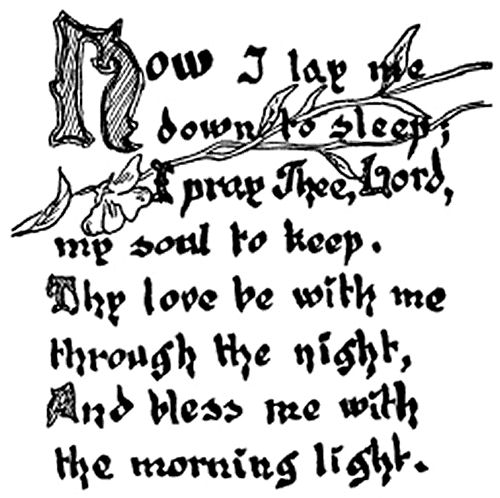 Now I lay me
down to sleep;
I pray Thee, Lord,
my soul to keep.
Thy love be with me
through the night,
And bless me with
the morning light.